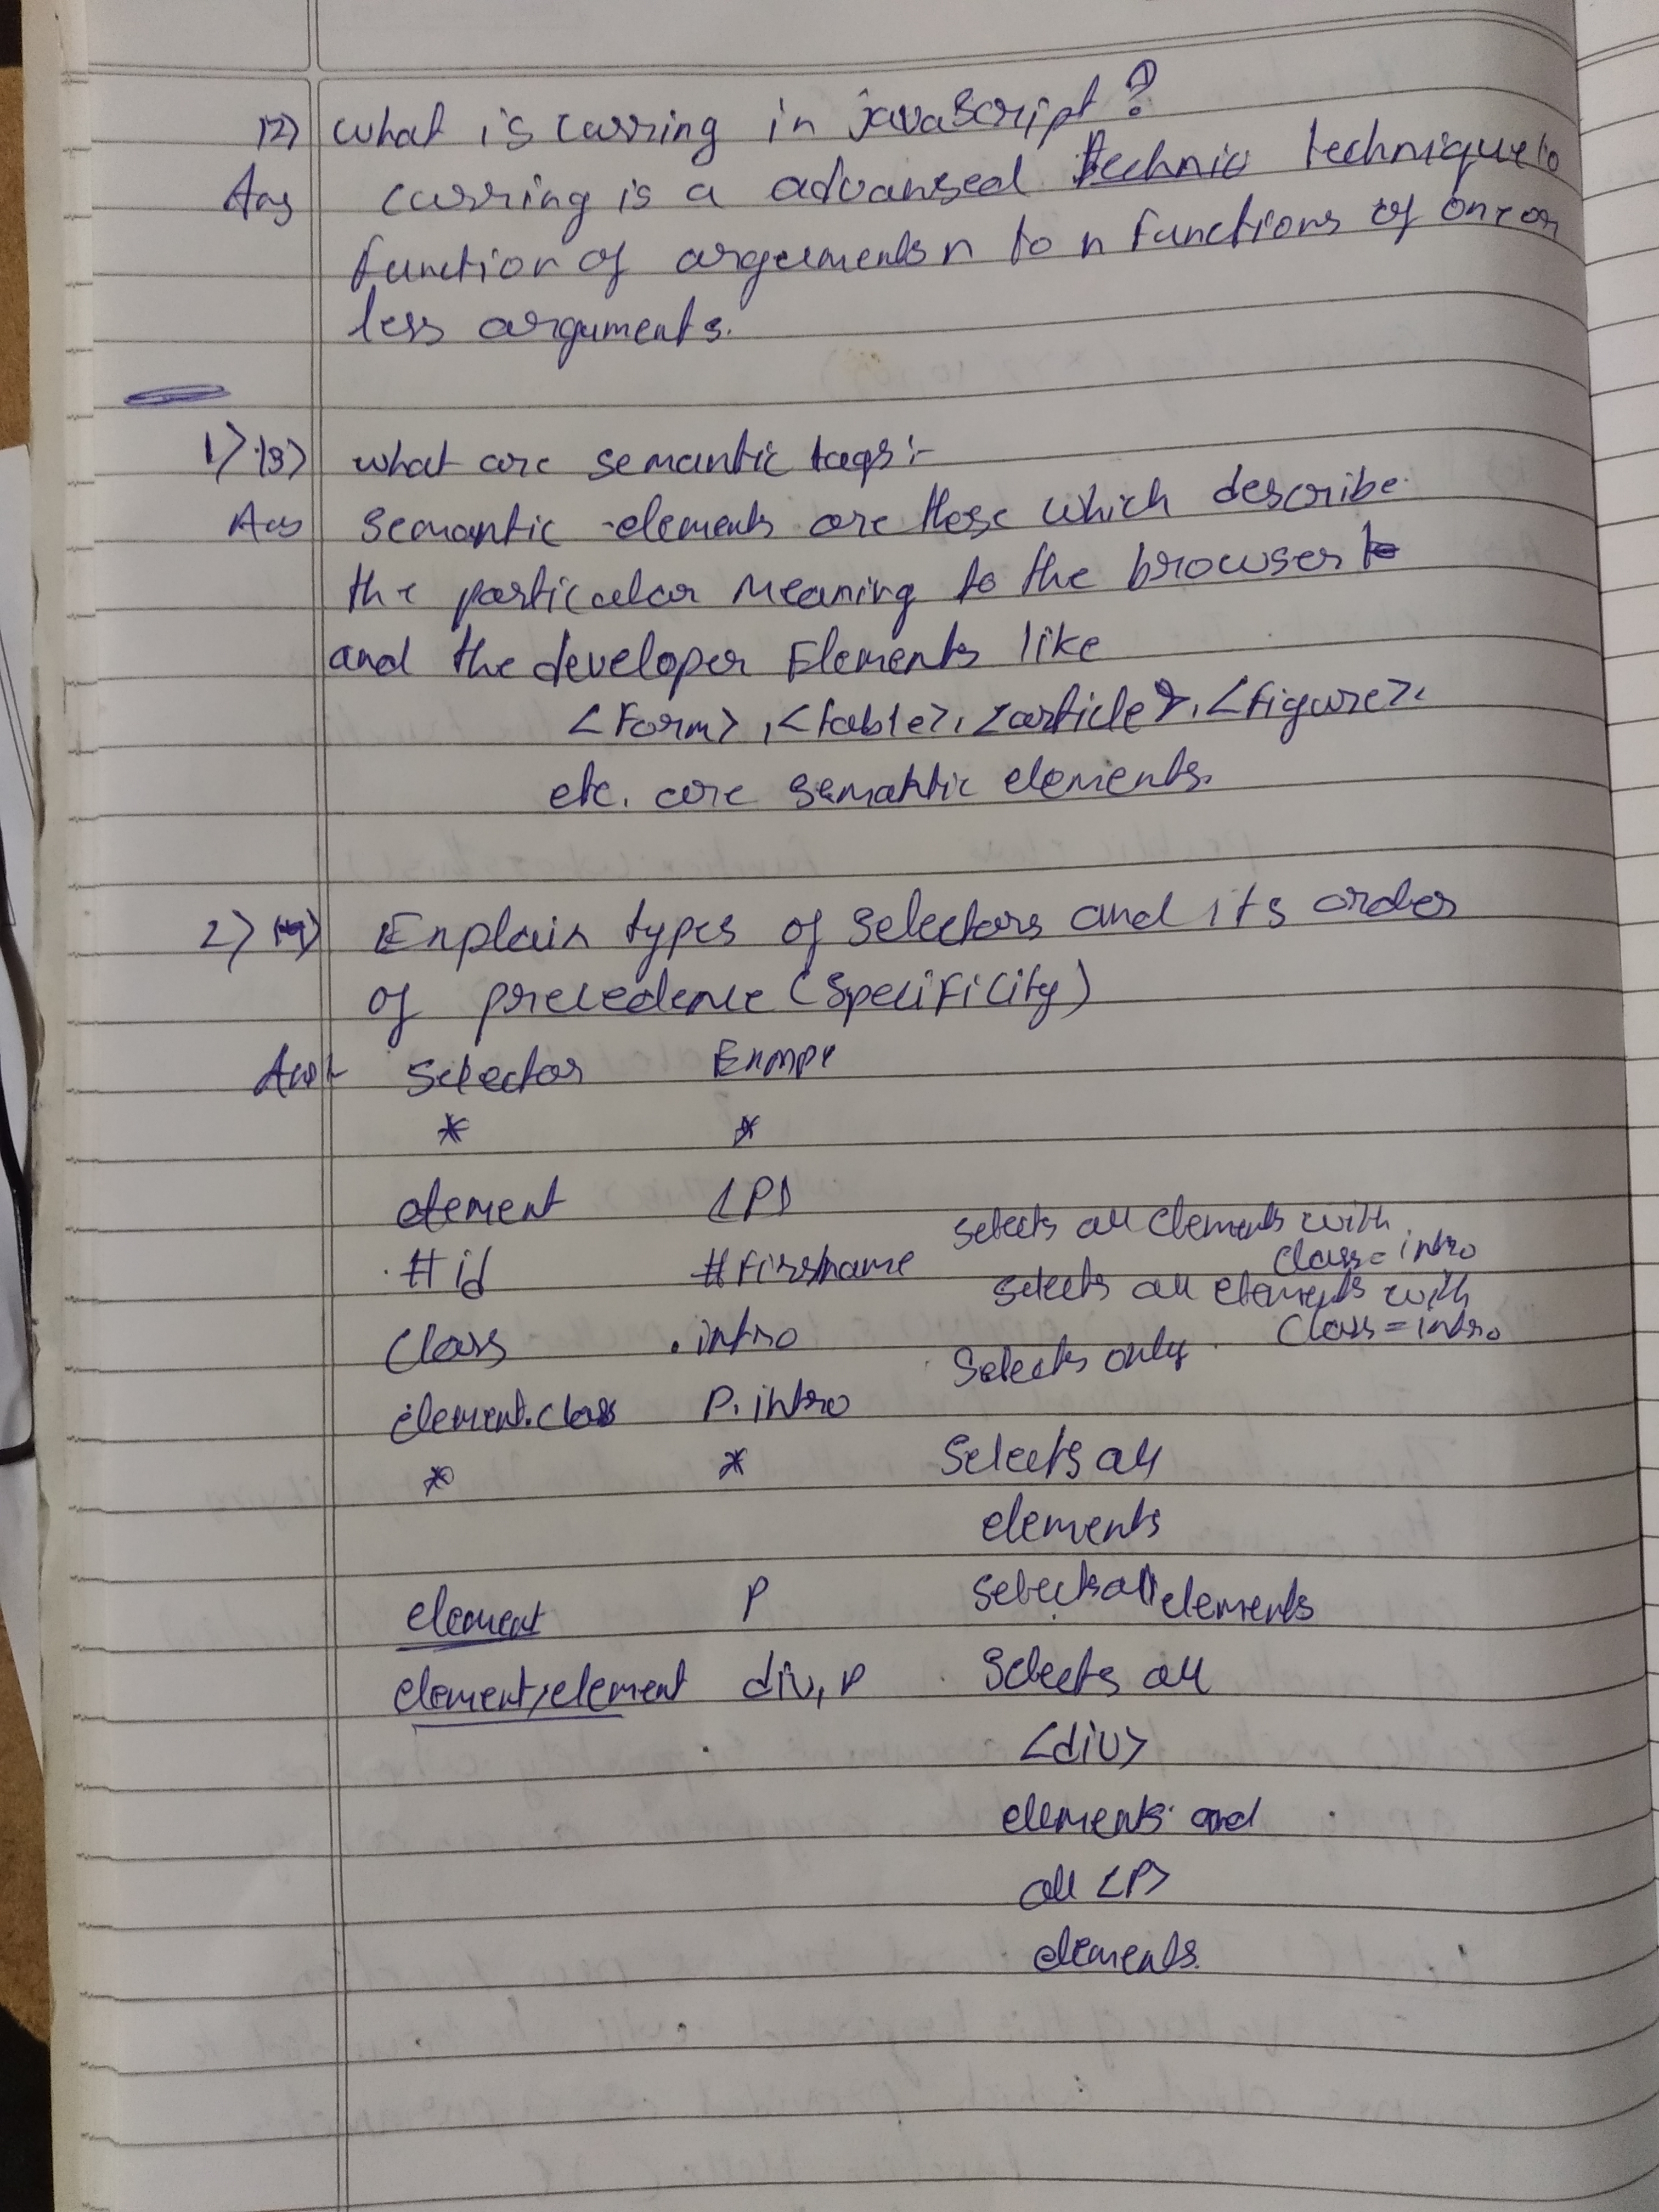 12) what is curring in javaScript?
Ans curring is a advansed technic technique to
function of arguements n to n functions of one or
less arguments.
1) 13) what are semantic tags:-
Ans Semantic elements are those which describe
the particular meaning to the browser to
and the developer Elements like
<Form>, <table>, <article>, <figure>.
etc. are semantic elements.
2) 14) Explain types of selectors and its order
of precedence (Specificity)
Ans:- Selector Exmpe
* *
element <P>
#id #firstname selects all elements with class=intro
Class .intro selects all elements with class=intro
element.class P.intro Selects only
* * Selects all
elements
element P selects all elements
element,element div, P Selects all
<div>
elements and
all <P>
elements.